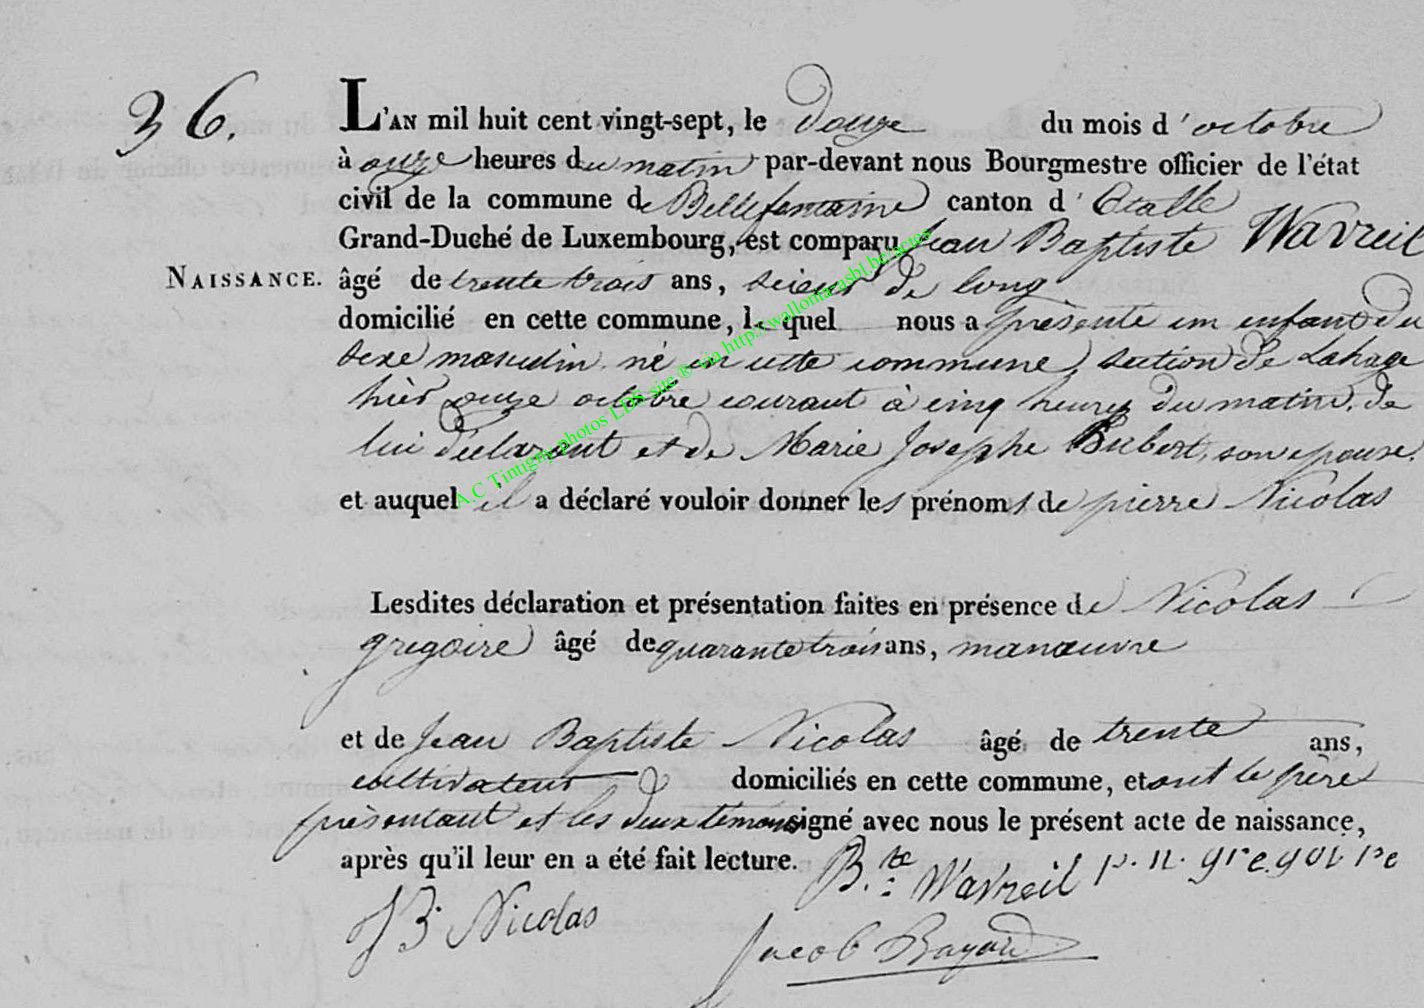 36.
L'AN mil huit cent vingt-sept, le douze du mois d'octobre
à onze heures du matin par-devant nous Bourgmestre officier de l'état
civil de la commune de Bellefontaine canton d'Etalle
Grand-Duché de Luxembourg, est comparu Jean Baptiste Wavreil
NAISSANCE. âgé de trente trois ans, scieur de long
domicilié en cette commune, lequel nous a présenté un enfant du
sexe masculin né en cette commune, section de Lahage
hier onze octobre courant à cinq heures du matin, de
lui déclarant et de Marie Josephe Hubert, son epouse.
et auquel il a déclaré vouloir donner les prénoms de pierre Nicolas
Lesdites déclaration et présentation faites en présence de Nicolas
gregoire âgé de quarante trois ans, manœuvre
et de Jean Baptiste Nicolas âgé de trente ans,
cultivateur domiciliés en cette commune, et ont le père
présentant et les deux témoins signé avec nous le présent acte de naissance,
après qu'il leur en a été fait lecture. B.te Wavreil p. n. gregoire
JB Nicolas
Jacob Bayard
A.C Tintigny photos LDS site ® via http://wallonia.asbl.be/actes